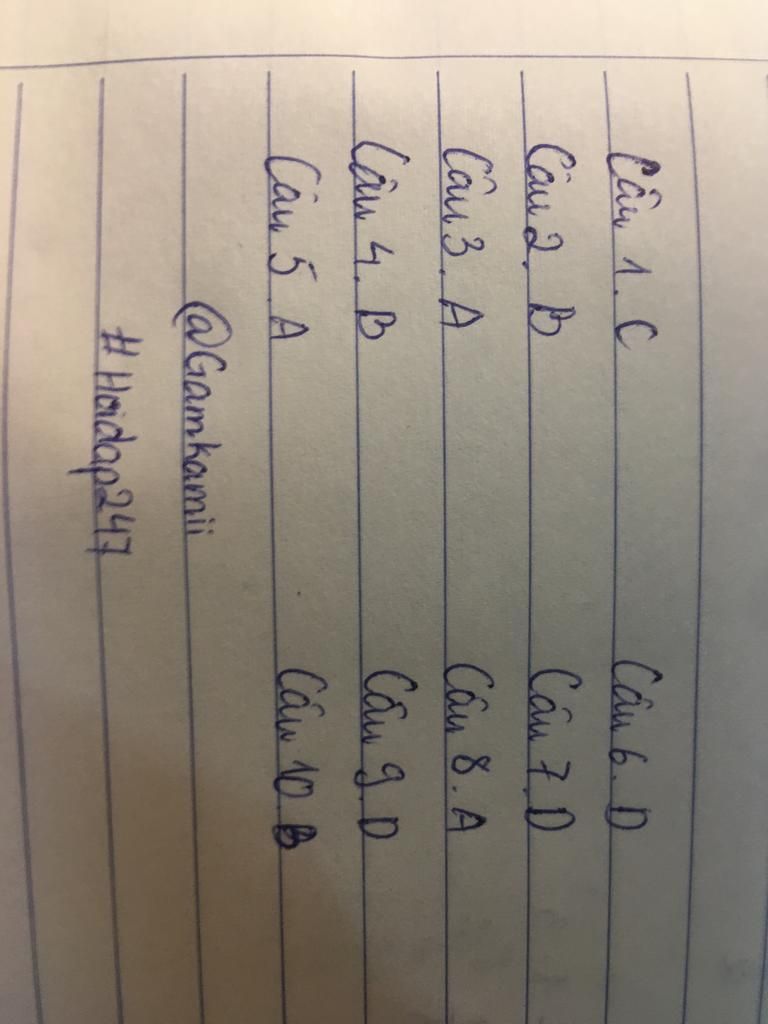 Câu 1. C Câu 6. D
Câu 2. B Câu 7. D
Câu 3. A Câu 8. A
Câu 4. B Câu 9. D
Câu 5. A Câu 10. B
@Gamkamii
#Hoidap247